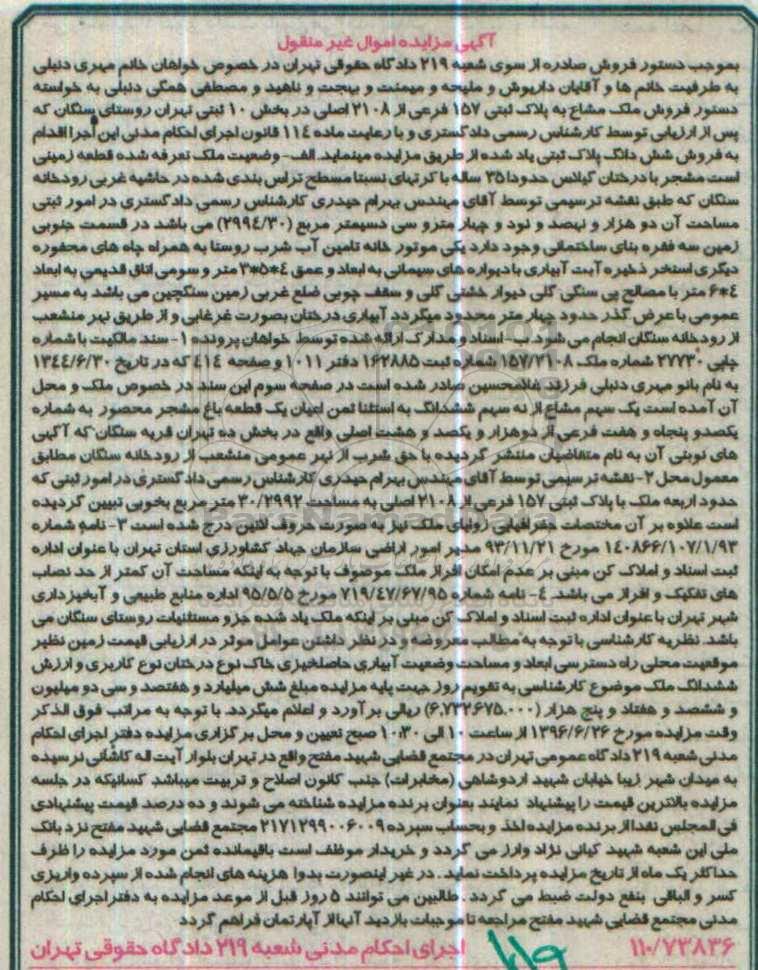 آگهی مزایده اموال غیر منقول
بموجب دستور فروش صادره از سوی شعبه ۲۱۹ دادگاه حقوقی تهران در خصوص خواهان خانم مهری دنبلی
به طرفیت خانم ها و آقایان داریوش و ملیحه و میمنت و بهجت و ناهید و مصطفی همگی دنبلی به خواسته
دستور فروش ملک مشاع به پلاک ثبتی ۱۵۷ فرعی از ۲۱۰۸ اصلی در بخش ۱۰ ثبتی تهران روستای سنگان که
پس از ارزیابی توسط کارشناس رسمی دادگستری و با رعایت ماده ۱۱٤ قانون اجرای احکام مدنی این اجرا اقدام
به فروش شش دانگ پلاک ثبتی یاد شده از طریق مزایده مینماید. الف- وضعیت ملک تعرفه شده قطعه زمینی
است مشجر با درختان گیلاس حدودا ۳۵ ساله با کرتهای نسبتا مسطح تراس بندی شده در حاشیه غربی رودخانه
سنگان که طبق نقشه ترسیمی توسط آقای مهندس بهرام حیدری کارشناس رسمی دادگستری در امور ثبتی
مساحت آن دو هزار و نهصد و نود و چهار مترو سی دسیمتر مربع (۲۹۹٤/۳۰) می باشد در قسمت جنوبی
زمین سه فقره بنای ساختمانی وجود دارد یکی موتور خانه تامین آب شرب روستا به همراه چاه های محفوره
دیگری استخر ذخیره آبت آبیاری با دیواره های سیمانی به ابعاد و عمق ٤*۵*۳ متر و سومی اتاق قدیمی به ابعاد
٤*۶ متر با مصالح پی سنگی گلی دیوار خشتی گلی و سقف چوبی ضلع غربی زمین سنگچین می باشد به مسیر
عمومی با عرض گذر حدود چهار متر محدود میگردد آبیاری درختان بصورت غرغابی و از طریق نهر منشعب
از رودخانه سنگان انجام می شود. ب- اسناد و مدارک ارائه شده توسط خواهان پرونده ۱- سند مالکیت با شماره
چاپی ۲۷۷۳۰ شماره ملک ۱۵۷/۲۱۰۸ شماره ثبت ۱۶۲۸۸۵ دفتر ۱۰۱۱ و صفحه ٤۱٤ که در تاریخ ۱۳٤٤/۶/۳۰
به نام بانو مهری دنبلی فرزند غلامحسین صادر شده است در صفحه سوم این سند در خصوص ملک و محل
آن آمده است یک سهم مشاع از نه سهم ششدانگ به استثنا ثمن اعیان یک قطعه باغ مشجر محصور به شماره
یکصدو پنجاه و هفت فرعی از دوهزار و یکصد و هشت اصلی واقع در بخش ده تهران قریه سنگان که آگهی
های نوبتی آن به نام متقاضیان منتشر گردیده با حق شرب از نهر عمومی منشعب از رودخانه سنگان مطابق
معمول محل ۲- نقشه ترسیمی توسط آقای مهندس بهرام حیدری کارشناس رسمی دادگستری در امور ثبتی که
حدود اربعه ملک با پلاک ثبتی ۱۵۷ فرعی از ۲۱۰۸ اصلی به مساحت ۳۰/۲۹۹۲ متر مربع بخوبی تبیین گردیده
است علاوه بر آن مختصات جغرافیایی زوایای ملک نیز به صورت حروف لاتین درج شده است ۳- نامه شماره
۱٤۰۸۶۶/۱۰۷/۱/۹۳ مورخ ۹۳/۱۱/۲۱ مدیر امور اراضی سازمان جهاد کشاورزی استان تهران با عنوان اداره
ثبت اسناد و املاک کن مبنی بر عدم امکان افراز ملک موصوف با توجه به اینکه مساحت آن کمتر از حد نصاب
های تفکیک و افراز می باشد. ٤- نامه شماره ۷۱۹/٤۷/۶۷/۹۵ مورخ ۹۵/۵/۵ اداره منابع طبیعی و آبخیزداری
شهر تهران با عنوان اداره ثبت اسناد و املاک کن مبنی بر اینکه ملک یاد شده جزو مستثنیات روستای سنگان می
باشد. نظریه کارشناسی با توجه به مطالب معروضه و در نظر داشتن عوامل موثر در ارزیابی قیمت زمین نظیر
موقعیت محلی راه دسترسی ابعاد و مساحت وضعیت آبیاری حاصلخیزی خاک نوع درختان نوع کاربری و ارزش
ششدانگ ملک موضوع کارشناسی به تقویم روز جهت پایه مزایده مبلغ شش میلیارد و هفتصد و سی دو میلیون
و ششصد و هفتاد و پنج هزار (۶.۷۳۲.۶۷۵.۰۰۰) ریالی بر آورد و اعلام میگردد. با توجه به مراتب فوق الذکر
وقت مزایده مورخ ۱۳۹۶/۶/۲۶ از ساعت ۱۰ الی ۱۰:۳۰ صبح تعیین و محل برگزاری مزایده دفتر اجرای احکام
مدنی شعبه ۲۱۹ دادگاه عمومی تهران در مجتمع قضایی شهید مفتح واقع در تهران بلوار آیت اله کاشانی نرسیده
به میدان شهر زیبا خیابان شهید اردوشاهی (مخابرات) جنب کانون اصلاح و تربیت میباشد کسانیکه در جلسه
مزایده بالاترین قیمت را پیشنهاد نمایند بعنوان برنده مزایده شناخته می شوند و ده درصد قیمت پیشنهادی
فی المجلس نقدا از برنده مزایده اخذ و بحساب سپرده ۲۱۷۱۲۹۹۰۰۶۰۰۹ مجتمع قضایی شهید مفتح نزد بانک
ملی این شعبه شهید کیانی نژاد واریز می گردد و خریدار موظف است باقیمانده ثمن مورد مزایده را ظرف
حداکثر یک ماه از تاریخ مزایده پرداخت نماید. در غیر اینصورت بدوا هزینه های انجام شده از سپرده واریزی
کسر و الباقی بنفع دولت ضبط می گردد. طالبین می توانند ۵ روز قبل از موعد مزایده به دفتر اجرای احکام
مدنی مجتمع قضایی شهید مفتح مراجعه تا موجبات بازدید آنها از آپارتمان فراهم گردد
۱۱۰/۷۳۸۳۶ اجرای احکام مدنی شعبه ۲۱۹ دادگاه حقوقی تهران